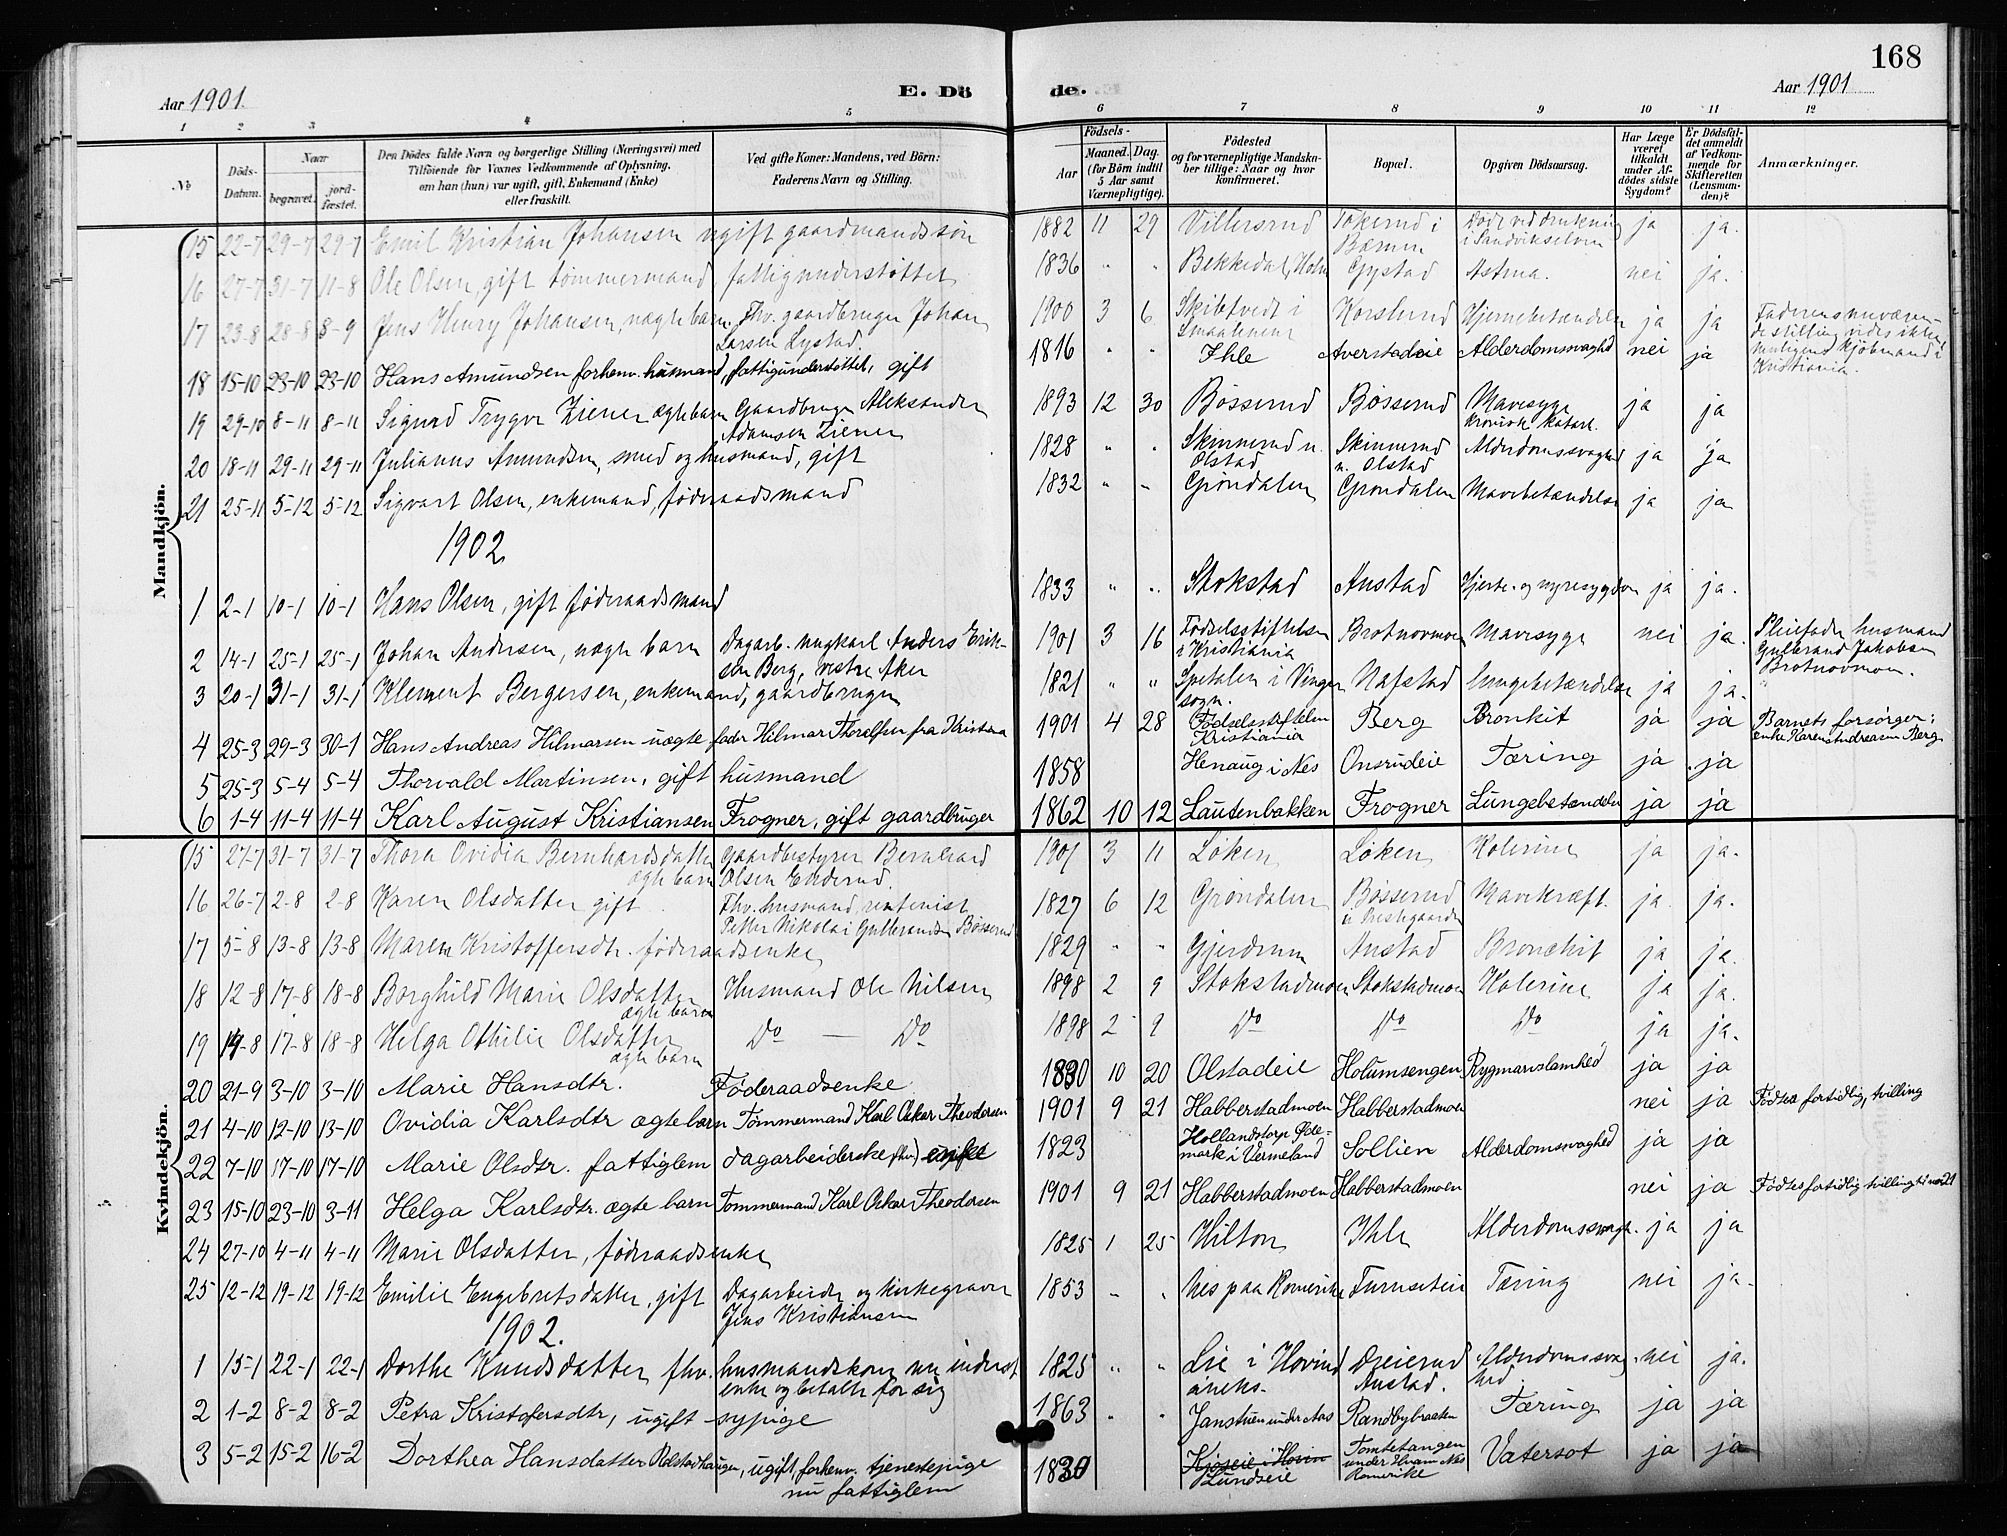 168
Aar 1901
E. Dö
de.
Aar 1901
1 2 3 4 5 6 7 8 9 10 11 12
No
Döds-Datum.
Naar
begravet.
jord-fæstet.
Den Dödes fulde Navn og borgerlige Stilling (Næringsvei) med
Tilföiende for Voxnes Vedkommende af Oplysning,
om han (hun) var ugift, gift, Enkemand (Enke)
eller fraskilt.
Ved gifte Koner: Mandens, ved Börn:
Faderens Navn og Stilling.
Födsels-
Aar
Maaned. Dag.
(for Börn indtil
5 Aar samt
Værnepligtige).
Födested
og for værnepligtige Mandska-
ber tillige: Naar og hvor
konfirmeret.
Bopæl.
Opgiven Dödsaarsag.
Har Læge
været
tilkaldt
under Af-
dödes sidste
Sygdom?
Er Dödsfal-
det anmeldt
af Vedkom-
mende for
Skifteretten
(Lensman-
den)?
Anmærkninger.
Mandkjön.
15 22-7 29-7 29-7 Emil Kristian Johansen ugift gaardmandssön 1882 11 29 Villersrud Tokerud i Bærum Död ved drukning i Sandvikselven ja ja.
16 27-7 31-7 11-8 Ole Olsen, gift tömmermand, fattigunderstöttet 1836 " " Bekkedal, Holm Gystad Astma. nei ja.
17 23-8 28-8 8-9 Jens Henry Johansen, uægte barn Fhv. gaardbruger Johan Larsen Lystad. 1900 3 6 Skibtvedt i Smaalenene Korslund Hjernebetændelse ja ja Faderens nuværende stilling vides ikke, kjöbmand i Kristiania.
18 15-10 23-10 23-10 Hans Amundsen forhenv. husmand, fattigunderstöttet, gift 1816 " " Ihle Averstadeie Alderdomsvaghed nei ja
19 29-10 8-11 8-11 Sigurd Trygve Ziener ægte barn Gaardbruger Aleksander Adamsen Ziener 1893 12 30 Bösserud Bösserud Mavesyge kronisk katarh. ja ja
20 18-11 29-11 29-11 Julianus Amundsen, smed og husmand, gift 1828 " " Skinnerud u. Olstad Skinnerud u. Olstad Alderdomssvaghed ja ja
21 25-11 5-12 5-12 Sigvart Olsen, enkemand, föderaadsmand 1832 " - Gröndalen Gröndalen Mavebetændelse ja ja
1902
1 2-1 10-1 10-1 Hans Olsen, gift föderaadsmand 1833 " " Stokstad Austad Hjerte- og nyresygdom ja ja.
2 14-1 25-1 25-1 Johan Andersen, uægte barn Dagarb. ungkarl Anders Eriksen Berg, vestre Aker 1901 3 16 Födselsstiftelsen i Kristiania Brotnovmoen Mavesyge nei ja. Pleiefader husmand Gulbrand Jakobsen Brotnovmoen.
3 20-1 31-1 31-1 Klement Bergersen, enkemand, gaardbruger 1821 " " Spetalen i Vinger sogn. Nafstad Lungebetændelse ja ja.
4 25-3 29-3 30-1 Hans Andreas Hilmarsen uægte fader Hilmar Thoralfsen fra Kristiania 1901 4 28 Födselsstiftelsen Kristiania Berg Bronkit ja ja Barnets forsörger: enke Karen Andreasen Berg
5 25-3 5-4 5-4 Thorvald Martinsen, gift husmand 1858 Henaug i Nes Onsrudeie Tæring ja ja
6 1-4 11-4 11-4 Karl August Kristiansen Frogner, gift gaardbruger 1862 10 12 Lautenbakken Frogner Lungebetændelse ja ja
Kvindekjön.
15 27-7 31-7 31-7 Thora Ovidia Bernhardsdatter ægte barn Gaardbestyrer Bernhard Olsen Enderud. 1901 3 11 Löken Löken Kolerine ja ja.
16 26-7 2-8 2-8 Karen Olsdatter gift Fhv. husmand, rentenist Petter Nikolai Gulbrandsen Bösserud 1827 6 12 Gröndalen Bösserud i Prestegaarden Mavekræft. ja ja.
17 5-8 13-8 13-8 Maren Kristoffersdtr. föderaadsenke 1829 " " Gjerdrum Austad Bronchit ja ja.
18 12-8 17-8 18-8 Borghild Marie Olsdatter ægte barn Husmand Ole Nilsen 1898 2 9 Stokstadmoen Stokstadmoen Kolerine ja ja.
19 14-8 17-8 18-8 Helga Othilie Olsdatter ægte barn Do — Do 1898 2 9 Do Do Do ja ja.
20 21-9 3-10 3-10 Marie Hansdtr. Föderaadsenke 1830 10 20 Olstadeie Holumsengen Rygmarvslamhed ja ja
21 4-10 12-10 13-10 Ovidia Karlsdtr ægte barn Tömmermand Karl Oskar Theodorsen 1901 9 21 Habberstadmoen Habberstadmoen nei ja Födtes fortidlig, tvilling
22 7-10 17-10 17-10 Marie Olsdtr. fattiglem dagarbeiderske (fhv.) ugift 1823 Hollandstorp Ödemark i Vermeland Sollien Alderdomsvaghed ja ja
23 15-10 23-10 3-11 Helga Karlsdtr. ægte barn Tömmermand Karl Oskar Theodorsen 1901 9 21 Habberstadmoen Habberstadmoen nei ja Födtes fortidlig tvilling til no 21
24 27-10 4-11 4-11 Marie Olsdatter, föderaadsenke 1825 1 25 Hilton Ihle Alderdomssvagh. ja ja
25 12-12 19-12 19-12 Emilie Engebretsdatter, gift Dagarbeider og kirkegraver Jens Kristiansen 1853 - " Nes paa Romerike Furuseteie Tæring nei ja.
1902.
1 15-1 22-1 22-1 Dorthe Knudsdatter, fhv. husmandskone, nu inderst enke og betalte for sig 1825 " " Lie i Hovind aneks. Austad. Alderdomssvaghed nei ja.
2 1-2 8-2 8-2 Petra Kristofersdtr, ugift sypige 1863 " " Janstuen under Aas Randbybraaten Tæring ja ja
3 5-2 15-2 16-2 Dorthea Hansdatter Olstadhaugen, ugift, forhenv. tjenestepige nu fattiglem 1830 Kjoseie i Hovin Lundseie Tomtetangen under Hvam Nes Romerike Vatersot ja ja